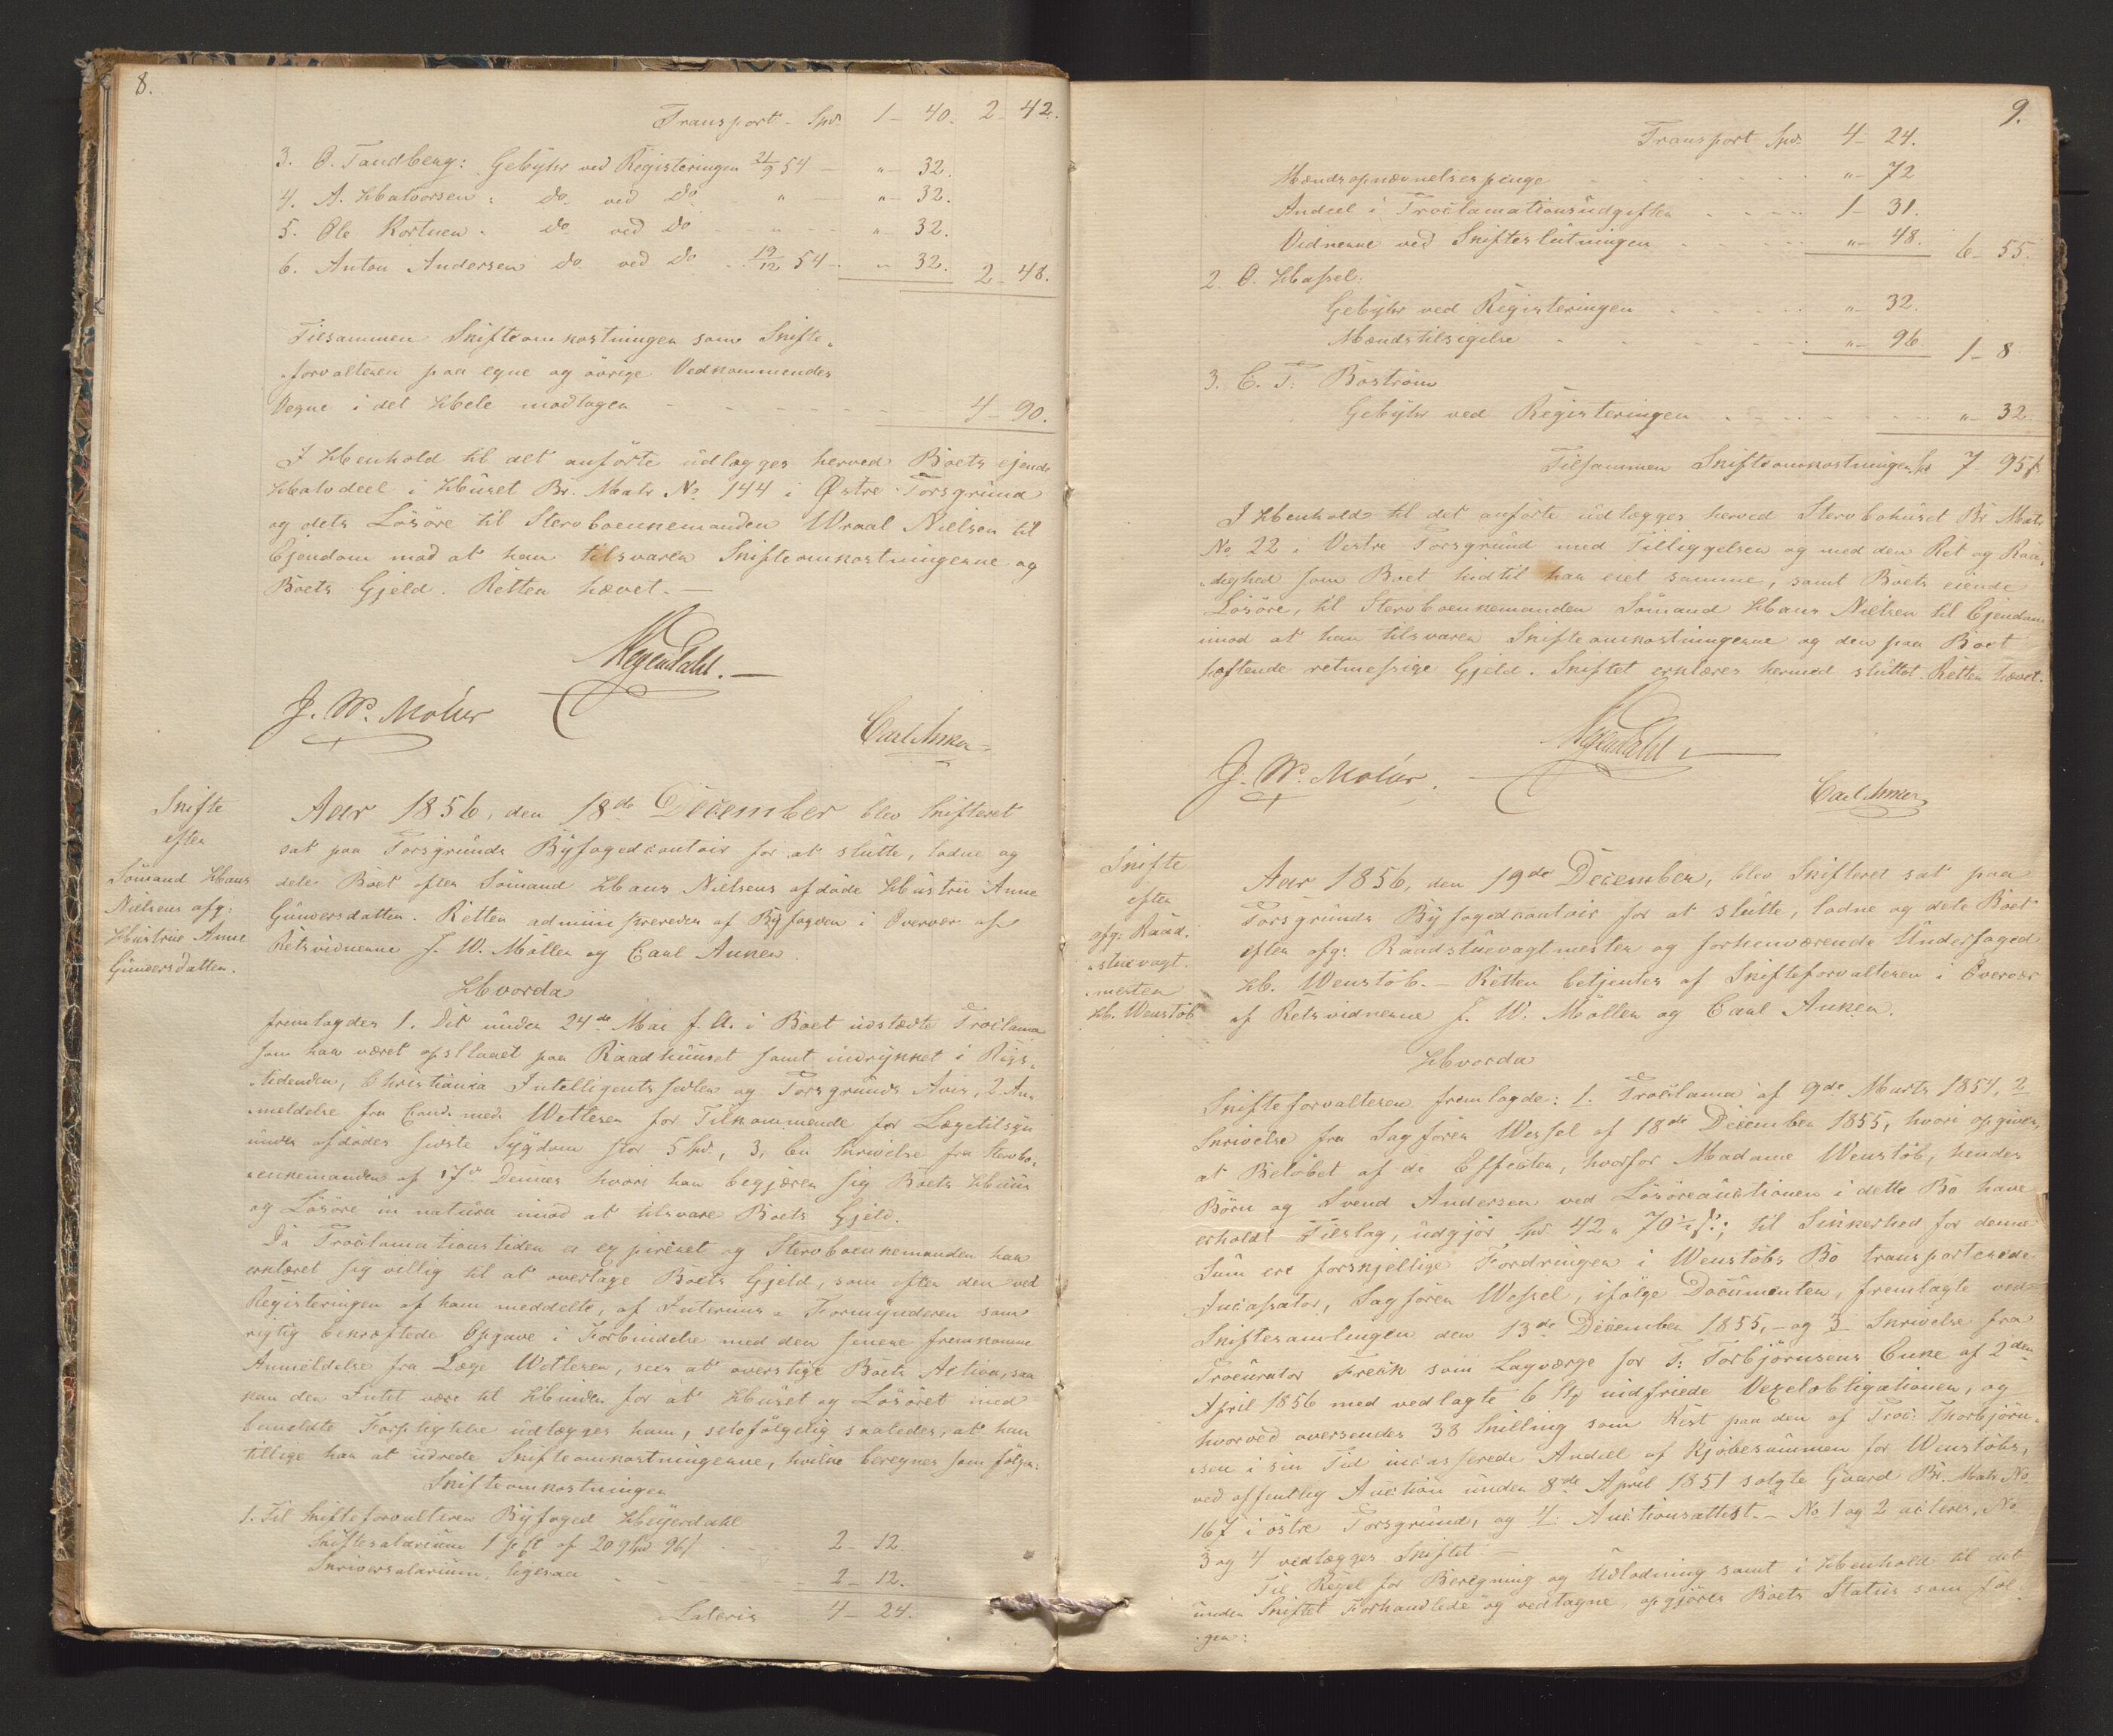 8.
Transport - Spd. 1 - 40. 2 - 42.
3. O. Tandberg: Gebÿhr ved Registeringen 21/9 54 - " - 32.
4. A. Halvorsen: do. ved do. " - " - 32.
5. Ole Kortnen. do ved do - " - " - 32.
6. Anton Andersen do. ved do. - 19/12 54 - " - 32. 2 - 48.
Tilsammen Skifteomkostninger som Skifte-
-forvalteren paa egne og övrige Vedkommendes
Vegne i det Hele modtager - - - 4 - 90.
I Henhold til det anförte udlægges herved Boets ejende
Halvdeel i Huset Br. Matr. No. 144 i Østre Porsgrund
og dets Lösöre til Stervboenkemanden Wraal Nielsen til
Ejendom mod at han tilsvarer Skifteomkostningerne og
Boets Gjeld. Retten hævet. -
Heyerdahl. -
J. W. Möller
Carl Anker
Skifte
efter
Sömand Hans
Nielsens afg:
Hustrue Anne
Gunders datter.
Aar 1856, den 18de December blev Skifteret
sat paa Porsgrunds Byfogedcontoir for at slutte, lodne og
dele Boet efter Sömand Hans Nielsens afdöde Hustru Anne
Gundersdatter. Retten administreredes af Byfogden i Overvær af
Retsvidnerne J. W. Moller og Carl Anker.
Hvorda
fremlagdes 1. Det under 24de Mai f. A. i Boet udstædte Proclama
som har været opslaaet paa Raadhuuset samt indrykket i Rigs-
-tidenden, Christiania Intelligentssedler og Porsgrunds Avis, 2. An-
-meldelse fra Cand. med. Wetlesen for Tilkommende for Lægetilsyn
under afdödes sidste Sygdom stor 5 Spd., 3, En Skrivelse fra Stervbo-
-enkemanden af 17de Dennes hvori han begjærer sig Boets Huus
og Lösöre in natura imod at tilsvare Boets Gjeld.
Da Proclamationstiden er expireret og Stervboenkemanden har
erklæret sig villig til at overtage Boets Gjeld, som efter den ved
Registeringen af ham meddelte, af Interims-Formynderen som
rigtig bekræftede Opgave i Forbindelse med den senere fremkomne
Anmeldelse fra Læge Wetlesen, sees at overstige Boets Activa, saa
kan der Intet være til Hinder for at Huset og Lösöret med
bemeldte Forpligtelse udlægges ham, selvfölgelig saaledes, at han
tillige har at udrede Skifteomkostningerne, hvilke beregnes som fölger:
Skifteomkostninger
1. Til Skifteforvalteren Byfoged Heyerdahl
Skiftesalarium 1 pCt af 209 Spd 96 s - - - 2 - 12.
Skriversalarium, ligesaa - - - 2 - 12.
Lateris 4 - 24.
9.
Transport Spd. 4 - 24.
Mændsopnævnelsespenge - - - " - 72
Andeel i Proclamationsudgifter - - - 1 - 31.
Vidnerne ved Skifteslutningen - - - " - 48. 6 - 55.
2. O. Hassel:
Gebÿhr ved Registeringen - - - " - 32.
Mændstilsigelse - - - " - 96 1 - 8
3. C. F. Boström
Gebÿhr ved Registeringen - - - " - 32.
Tilsammen Skifteomkostninger Spd 7 - 95 s
I Henhold til det anförte udlægges herved Stervbohuset Br. Matr
No. 22 i Vestre Porsgrund med Tilliggelser og med den Ret og Raa-
-dighed som Boet hidtil har eiet samme, samt Boets eiende
Lösöre, til Stervboenkemanden Sömand Hans Nielsen til Ejendom
imod at han tilsvarer Skifteomkostningerne og den paa Boet
hæftende retmessige Gjeld. Skiftet erklæres hermed sluttet. Retten hævet.
Heyerdahl. -
J. W. Möller.
Carl Anker
Skifte
efter
afg: Raad-
-stuevagt-
-mester
H. Wenstöb
Aar 1856, den 19de December, blev Skifteret sat paa
Porsgrunds Byfogedcontoir for at slutte, lodne og dele Boet
efter afg: Raadstuevagtmester og forhenværende Underfoged
H. Wenstöb. - Retten betjentes af Skifteforvalteren i Overvær
af Retsvidnerne J. W. Möller og Carl Anker.
Hvorda
Skifteforvalteren fremlagde: 1. Proclama af 9de Marts 1854, 2
Skrivelse fra Sagförer Wessel af 18de December 1855, hvori opgives,
at Belöbet af de Effecter, hvorfor Madame Wenstöb, hendes
Börn og Svend Andersen ved Lösöreauctionen i dette Bo have
erholdt Tilslag, udgjör Spd. 42 " 70 1/2 s.; til Sikkerhed for denne
Sum ere forskjellige Fordringer i Wenstöbs Bo transporterede
Incassator, Sagförer Wessel, ifölge Documenter, fremlagte ved
Skiftesamlingen den 13de December 1855, - og 3 Skrivelse fra
Procurator Freik som Lagværge for T: Torbjörnsens Enke af 2den
April 1856 med vedlagte 6 Stk indfriede Vexelobligationer, og
hvorved oversendes 38 Skilling som Rest paa den af Proc: Thorbjörn-
-sen i sin Tid incasserede Andeel af Kjöbesummen for Wenstöbs,
ved offentlig Auction under 8de April 1851 solgte Gaard Br. Matr No.
167 i östre Porsgrund, og 4: Auctionsattest. - No 1 og 2 acteres, No
3 og 4 vedlægges Skiftet. -
Til Regel for Beregning og Udlodning samt i Henhold til det
under Skiftet Forhandlede og vedtagne, opgjöres Boets Status som föl-
-ger: